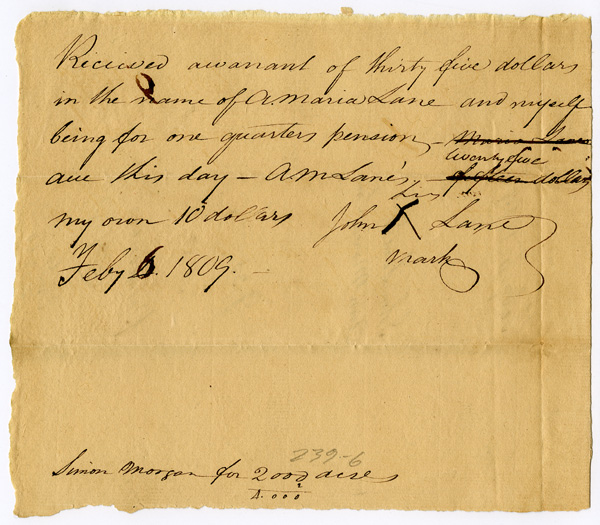 Received a warrant of thirty five dollars
in the name of A Maria Lane and myself
being for one quarters pension Maria Lane
twenty five
due this day – A M Lane's – fifteen dollars
his
my own 10 dollars John X Lane
mark
Feby 6. 1809. –
239-6
Simon Morgan for 2000 acres